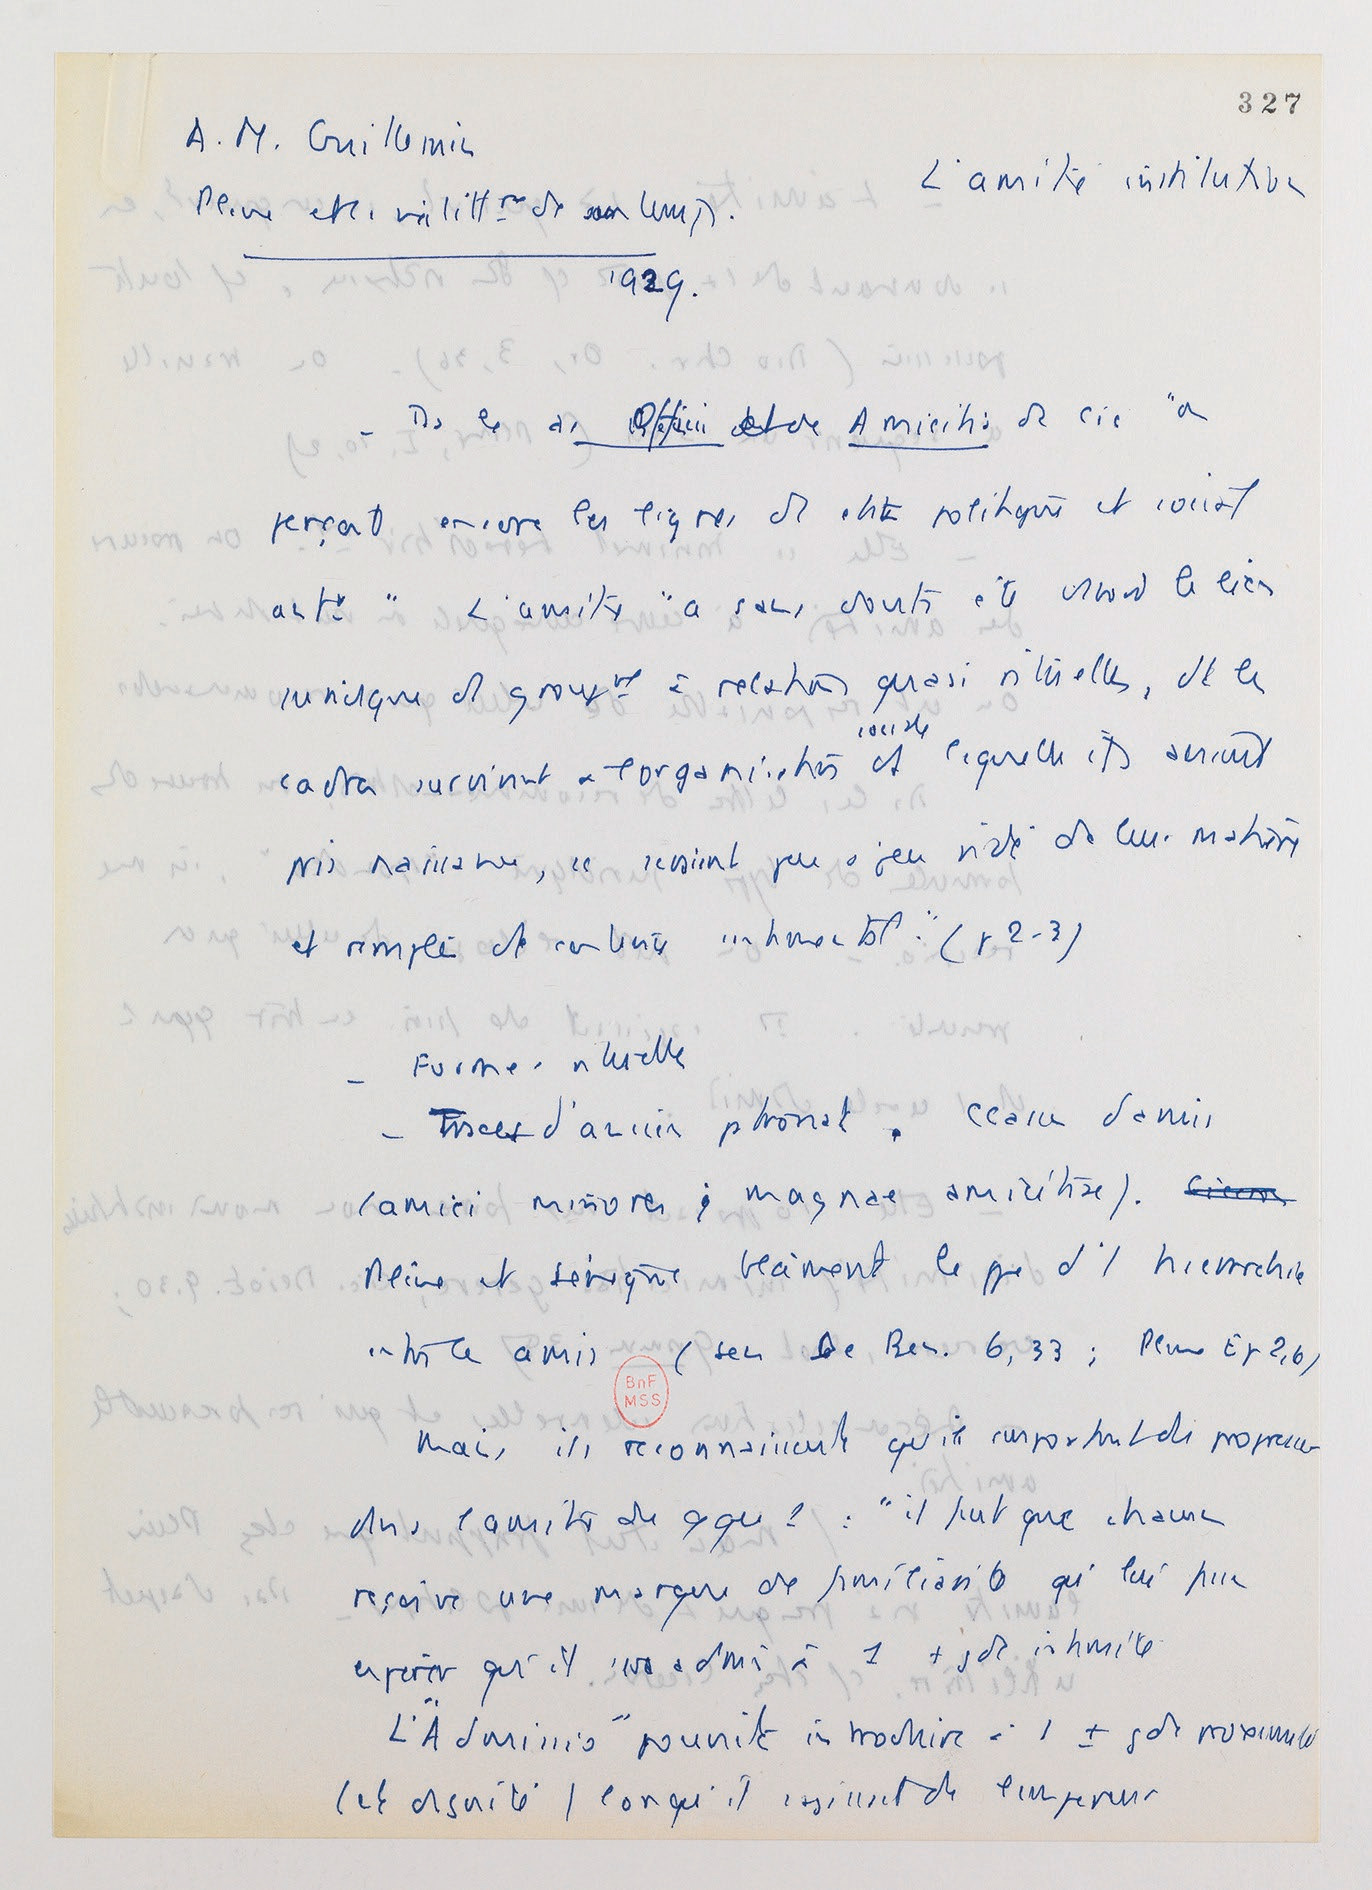 327
A. M. Guillemin
L'amitié institution
Pline et la vie littre de son temps.
1929.
_ Ds le de Officiis et de Amicitia de Cic "on
perçoit encore les lignes de cette politique et social
" L'amitié "a sans doute été d'abord le lien
juridique de groupt à relations quasi rituelles, dt les
cadres survivant à l'organisation sociale de laquelle ils avaient
pris naissance, se seraient peu à peu vidés de leur matière
et remplis de contenu sentimental". (p 2-3)
_ Formes rituelles
_ Traces d'ancien patronat. Classes d'amis
(amici minores ; magnae amicitiae).
Pline et Sénèque blâment le ppe d'1 hierarchie
entre les amis (Sen De Ben. 6, 33 ; Pline Ep 2,6)
Mais ils reconnaissent qu'il
dans l'amitié de qque 1 : "il faut que chacun
reçoive une marque de familiarité qui lui fasse
espérer qu'il sera admis à 1 + gde intimité
L'"Admissio" pouvait introduire à 1 ± gde proximité
(et dignité) lorsqu'il s'agissait de l'empereur
BnF
MSS